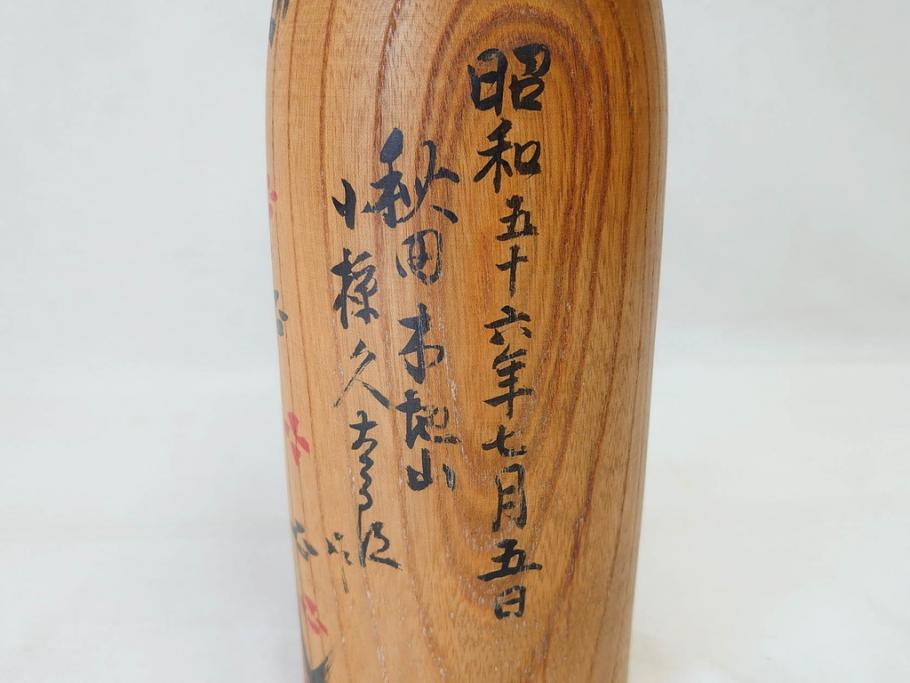 昭和五十六年七月五日
秋田木地山
小椋久太郎作